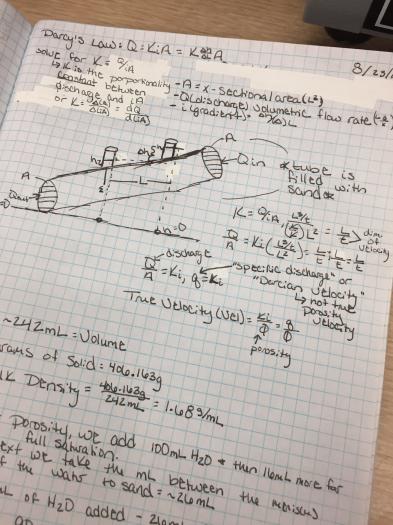 Darcy's Law: Q = KiA = K Δh/L A
8/29/
solve for K = Q/iA
↳ K is the porportionality
constant between
discharge and iA
or K = Δ(Q)/Δ(iA) = dQ/d(iA)
- A = x-sectional area (L²)
- Q (discharge) volumetric flow rate
- i (gradient) = Δh/L
A
h₂
Δh
L
Q in
A
Q out
h=0
* tube is
filled with
sand
K = Q/iA, L³/t / (L/L) L² = L/t
dim. of velocity
Q/A = Ki
discharge
Q/A = Ki, q = Ki
"specific discharge" or
"Darcian Velocity"
↳ not true
porosity
velocity
True Velocity (Vel) = Ki/Φ = q/Φ
porosity
~242mL = Volume
Grams of Solid: 406.163g
Density = 406.163g/242mL = 1.68g/mL
porosity, we add 100mL H₂O & then 16mL more for
full saturation.
next we take the mL between the meniscus
of the water to sand = ~26mL
mL of H₂O added -